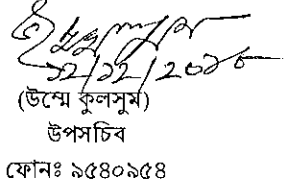 ১২/১২/২০১৮
(উম্মে কুলসুম)
উপসচিব
ফোনঃ ৯৫৪০৯৫৪